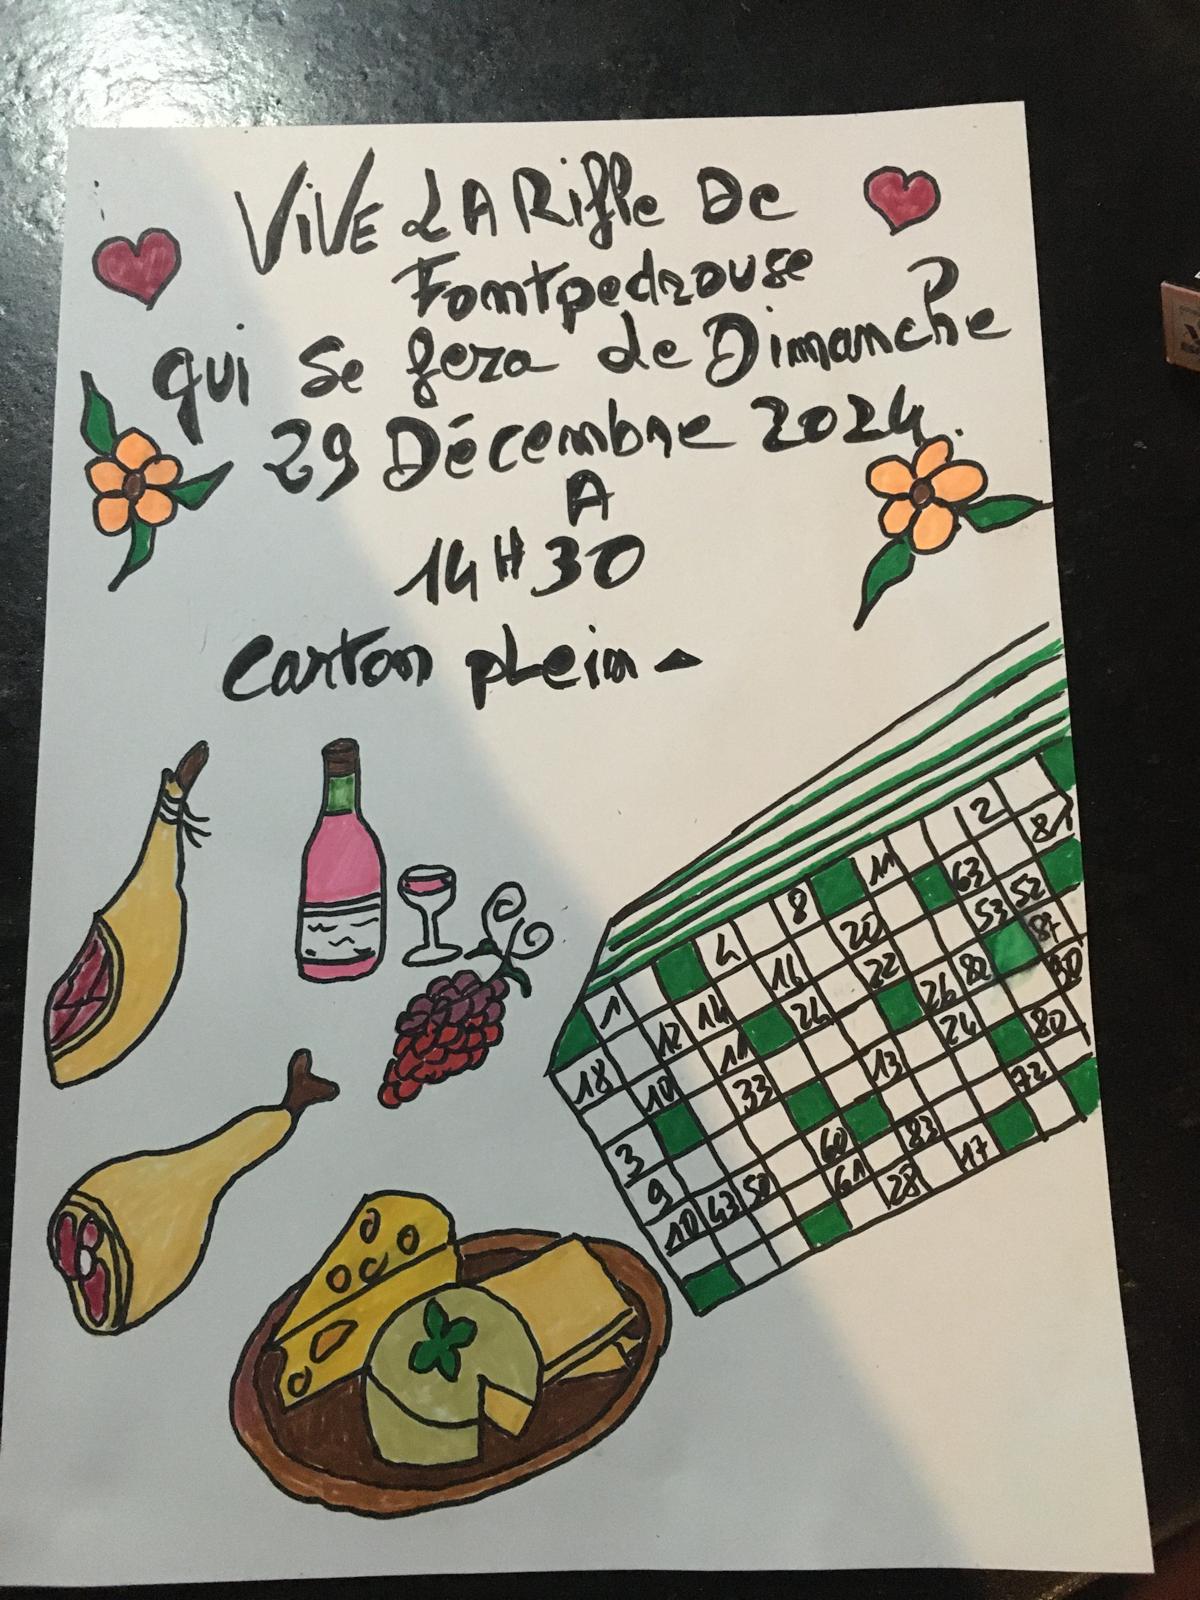 ViVE LA Rifle De
Fontpedrouse
qui se fera le Dimanche
29 Décembre 2024.
A
14H30
Carton plein
2
11
81
8
63
4
20
53
52
16
22
87
1
14
26
82
90
12
24
24
80
18
11
10
33
13
72
3
60
83
17
9
50
61
28
43
10